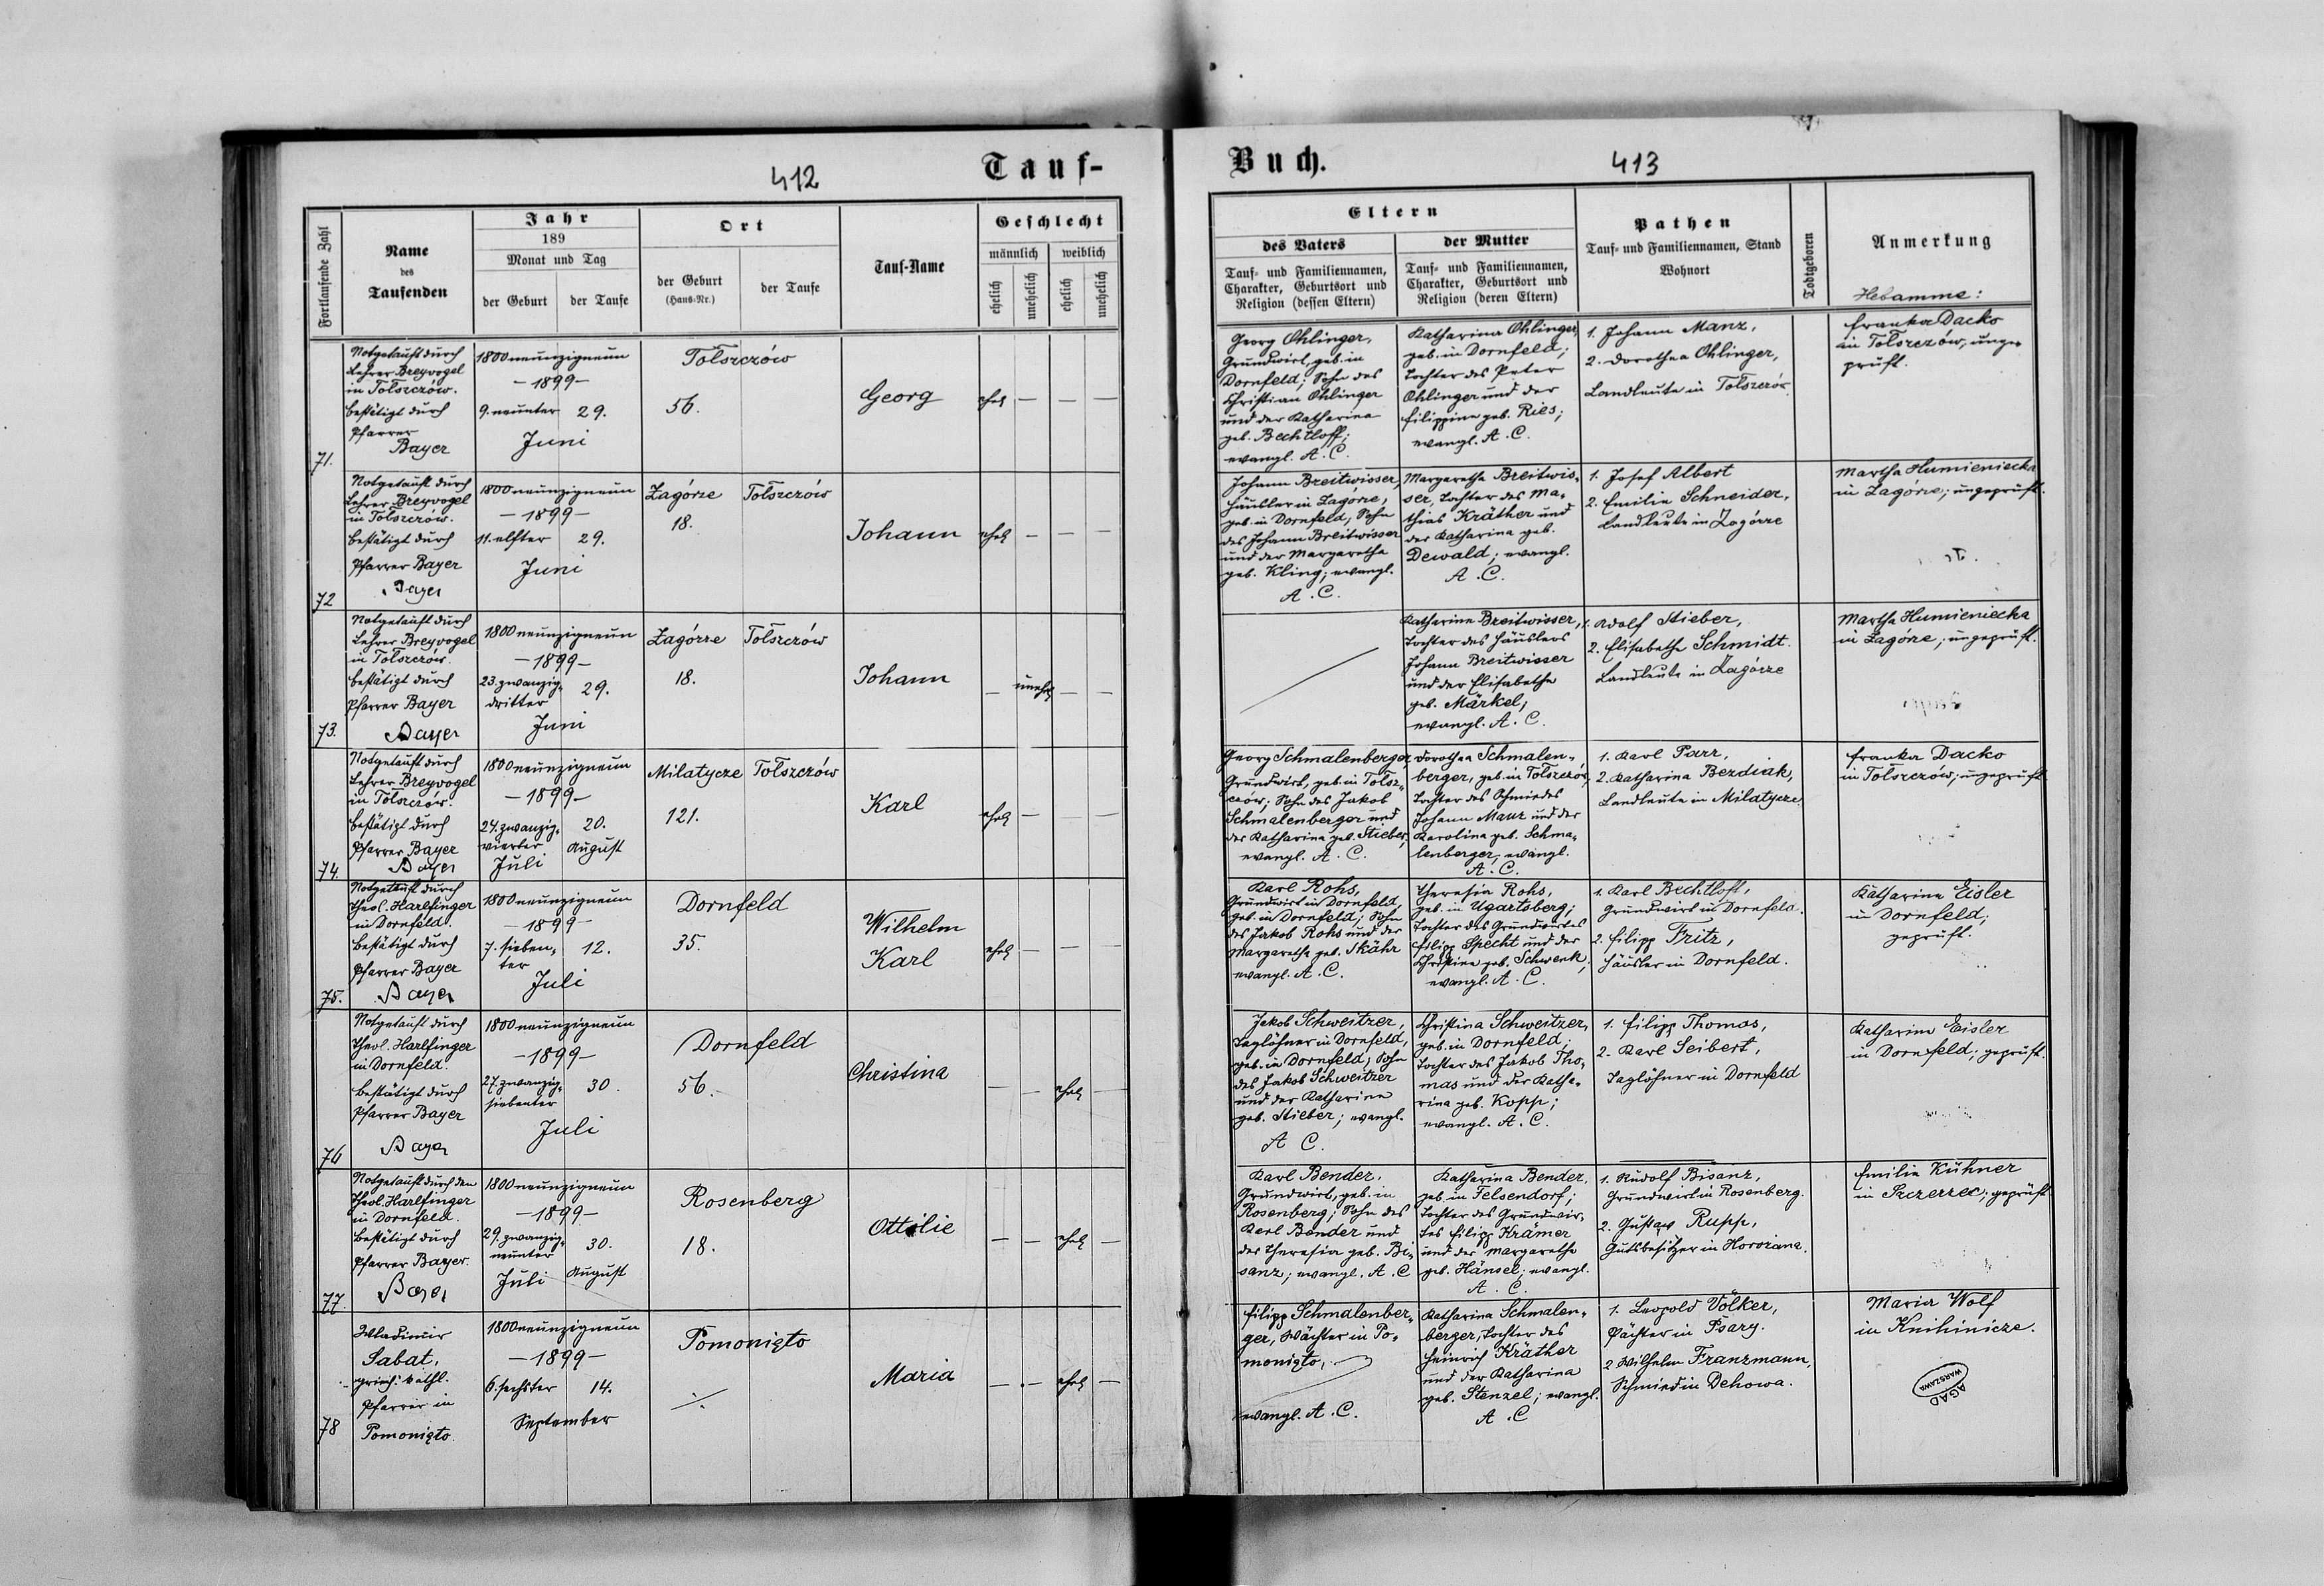 412
Tauf-
Fortlaufende Zahl
Name
des
Taufenden
Jahr
189
Monat und Tag
der Geburt
der Taufe
Ort
der Geburt
(Haus-Nr.)
der Taufe
Tauf-Name
Geschlecht
männlich
weiblich
ehelich
unehelich
ehelich
unehelich
71.
Notgetauft durch
Lehrer Breyvogel
in Tołszczów.
bestätigt durch
Pfarrer
Bayer
1800 neunzigneun
—1899—
9. neunter
29.
Juni
Tołszczów
56.
Georg
ehel. — — —
72
Notgetauft durch
Lehrer Breyvogel
in Tołszczów.
bestätigt durch
Pfarrer Bayer
Bayer
1800 neunzigneun
—1899—
11. elfter
29.
Juni
Zagórze
18.
Tołszczów
Johann
ehel. — — —
73.
Notgetauft durch
Lehrer Breyvogel
in Tołszczów.
bestätigt durch
Pfarrer Bayer
Bayer
1800 neunzigneun
—1899—
23. zwanzig-
dritter
29.
Juni
Zagórze
18.
Tołszczów
Johann
— unehel. — —
74.
Notgetauft durch
Lehrer Breyvogel
in Tołszczów.
bestätigt durch
Pfarrer Bayer
Bayer
1800 neunzigneun
—1899—
24. zwanzig-
vierter
Juli
20.
August
Milatycze
121.
Tołszczów
Karl
ehel. — — —
75.
Notgetauft durch
Theol. Harlfinger
in Dornfeld.
bestätigt durch
Pfarrer Bayer
Bayer
1800 neunzigneun
—1899—
7. sieben-
ter
12.
Juli
Dornfeld
35.
Wilhelm
Karl
ehel. — — —
76
Notgetauft durch
Theol. Harlfinger
in Dornfeld.
bestätigt durch
Pfarrer Bayer
Bayer
1800 neunzigneun
—1899—
27. zwanzig-
siebenter
30.
Juli
Dornfeld
56.
Christina
— — ehel. —
77.
Notgetauft durch den
Theol. Harlfinger
in Dornfeld.
bestätigt durch
Pfarrer Bayer.
Bayer
1800 neunzigneun
—1899—
29. zwanzig-
neunter
Juli
30.
August
Rosenberg
18.
Ottilie
— — ehel. —
78
Wladimir
Sabat,
griech. kathl.
Pfarrer in
Pomonięto.
1800 neunzigneun
—1899—
6. sechster
14.
September
Pomonięto
Maria
— — ehel. —
Buch.
413
Eltern
des Vaters
Tauf- und Familiennamen,
Charakter, Geburtsort und
Religion (dessen Eltern)
der Mutter
Tauf- und Familiennamen,
Charakter, Geburtsort und
Religion (deren Eltern)
Pathen
Tauf- und Familiennamen, Stand
Wohnort
Todtgeboren
Anmerkung
Hebamme:
Georg Ohlinger,
Grundwirt, geb. in
Dornfeld; Sohn des
Christian Ohlinger
und der Katharina
geb. Bechtloff;
evangl. A. C.
Katharina Ohlinger,
geb. in Dornfeld;
Tochter des Peter
Ohlinger und der
Filippine geb. Ries;
evangl. A. C.
1. Johann Manz,
2. Dorothea Ohlinger,
Landleute in Tołszczów
Franka Dacko
in Tołszczów, unge-
prüft.
Johann Breitwisser,
Häusler in Zagórze,
geb. in Dornfeld, Sohn
des Johann Breitwisser
und der Margaretha
geb. Kling; evangl.
A. C.
Margaretha Breitwis-
ser, Tochter des Ma-
thias Kräther und
der Katharina geb.
Dewald; evangl.
A. C.
1. Josef Albert
2. Emilie Schneider,
Landleute in Zagórze
Martha Humieniecka
in Zagórze; ungeprüft.
Katharina Breitwisser,
Tochter des Häuslers
Johann Breitwisser
und der Elisabetha
geb. Märkel;
evangl. A. C.
1. Adolf Stieber,
2. Elisabetha Schmidt.
Landleute in Zagórze
Martha Humieniecka
in Zagórze; ungeprüft.
Georg Schmalenberger
Grundwirt, geb. in Tołsz-
czów; Sohn des Jakob
Schmalenberger und
der Katharina geb. Stieber,
evangl. A. C.
Dorothea Schmalen-
berger, geb. in Tołszczów,
Tochter des Schmiedes
Johann Manz und der
Karolina geb. Schma-
lenberger, evangl.
A. C.
1. Karl Parr,
2. Katharina Bezdiak,
Landleute in Milatycze
Franka Dacko
in Tołszczów; ungeprüft
Karl Rohs,
Grundwirt in Dornfeld,
geb. in Dornfeld; Sohn
des Jakob Rohs und der
Margaretha geb. Skähr
evangl. A. C.
Theresia Rohs,
geb. in Ugartsberg;
Tochter des Grundwirtes
Filipp Specht und der
Christine geb. Schwenk,
evangl. A. C.
1. Karl Bechtloff,
Grundwirt in Dornfeld.
2. Filipp Fritz,
Häusler in Dornfeld.
Katharina Eisler
in Dornfeld;
geprüft.
Jakob Schweitzer,
Taglöhner in Dornfeld,
geb. in Dornfeld; Sohn
des Jakob Schweitzer
und der Katharina
geb. Stieber; evangl.
A C.
Christina Schweitzer,
geb. in Dornfeld;
Tochter des Jakob Tho-
mas und der Katha-
rina geb. Kopp;
evangl. A. C.
1. Filipp Thomas,
2. Karl Seibert,
Taglöhner in Dornfeld
Katharina Eisler
in Dornfeld; geprüft.
Karl Bender,
Grundwirt, geb. in
Rosenberg; Sohn des
Karl Bender und
der Theresia geb. Bi-
sanz; evangl. A. C
Katharina Bender,
geb. in Felsendorf;
Tochter des Grundwir-
tes Filipp Krämer
und der Margaretha
geb. Hänsel; evangl.
A. C.
1. Rudolf Bisanz,
Grundwirt in Rosenberg.
2. Gustav Rupp,
Gutsbesitzer in Horożana.
Emilie Kühner
in Szczerzec; geprüft
Filipp Schmalenber-
ger, Wächter in Po-
monięto,
evangl. A. C.
Katharina Schmalen-
berger, Tochter des
Heinrich Kräther
und der Katharina
geb. Stenzel; evangl.
A. C
1. Leopold Völker,
Pächter in Psary.
2 Wilhelm Franzmann,
Schmied in Dehowa.
Maria Wolf
in Knihinicze.
AGAD
WARSZAWA